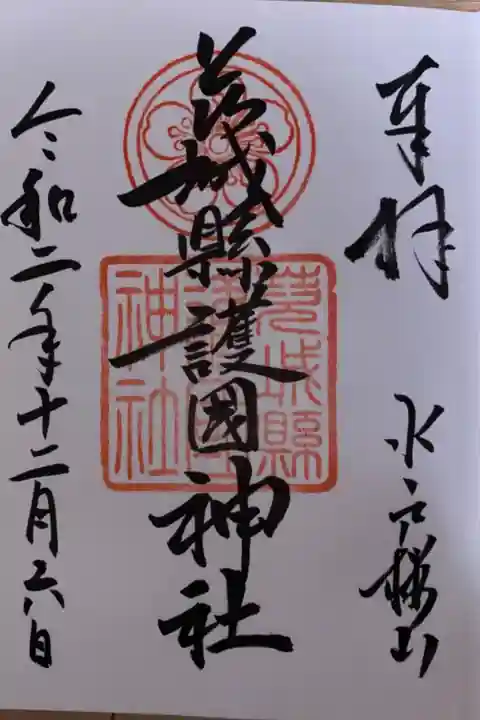 奉拝
水戸桜山
茨城縣護國神社
茨城縣
護國
神社
令和二年十二月六日